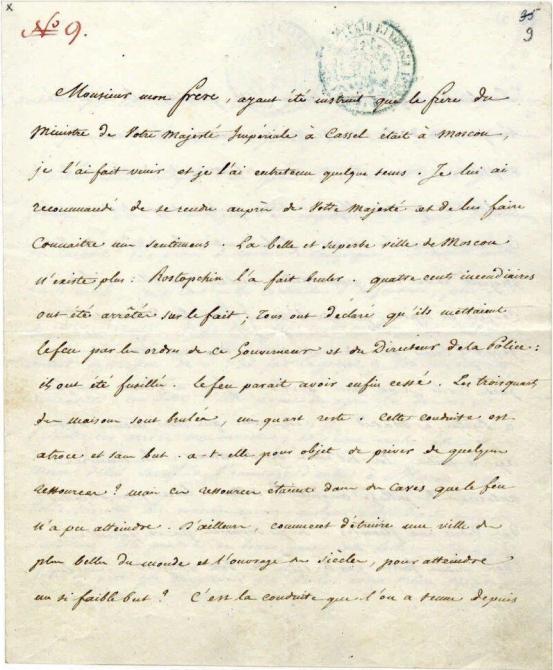 x
№ 9.
35
9
Monsieur mon frère, ayant été instruit que le frère du
Ministre de Votre Majesté Impériale à Cassel était à Moscou,
je l'ai fait venir et je l'ai entretenu quelque tems. Je lui ai
recommandé de se rendre auprès de Votre Majesté et de lui faire
connaitre mes sentimens. La belle et superbe ville de Moscou
n'existe plus: Rostopchin l'a fait bruler. quatre cents incendiaires
ont été arrêtés sur le fait; Tous ont déclaré qu'ils mettaient
le feu par les ordres de ce Gouverneur et du Directeur de la Police:
ils ont été fusillés. le feu parait avoir enfin cessé. Les trois quarts
des maisons sont brulées, un quart reste. Cette conduite est
atroce et sans but. a-t-elle pour objet de priver de quelques
ressources? mais ces ressources étaient dans des caves que le feu
n'a pu atteindre. D'ailleurs, comment détruire une ville des
plus belles du monde et l'ouvrage des siècles, pour atteindre
un si faible but? C'est la conduite que l'on a tenue depuis